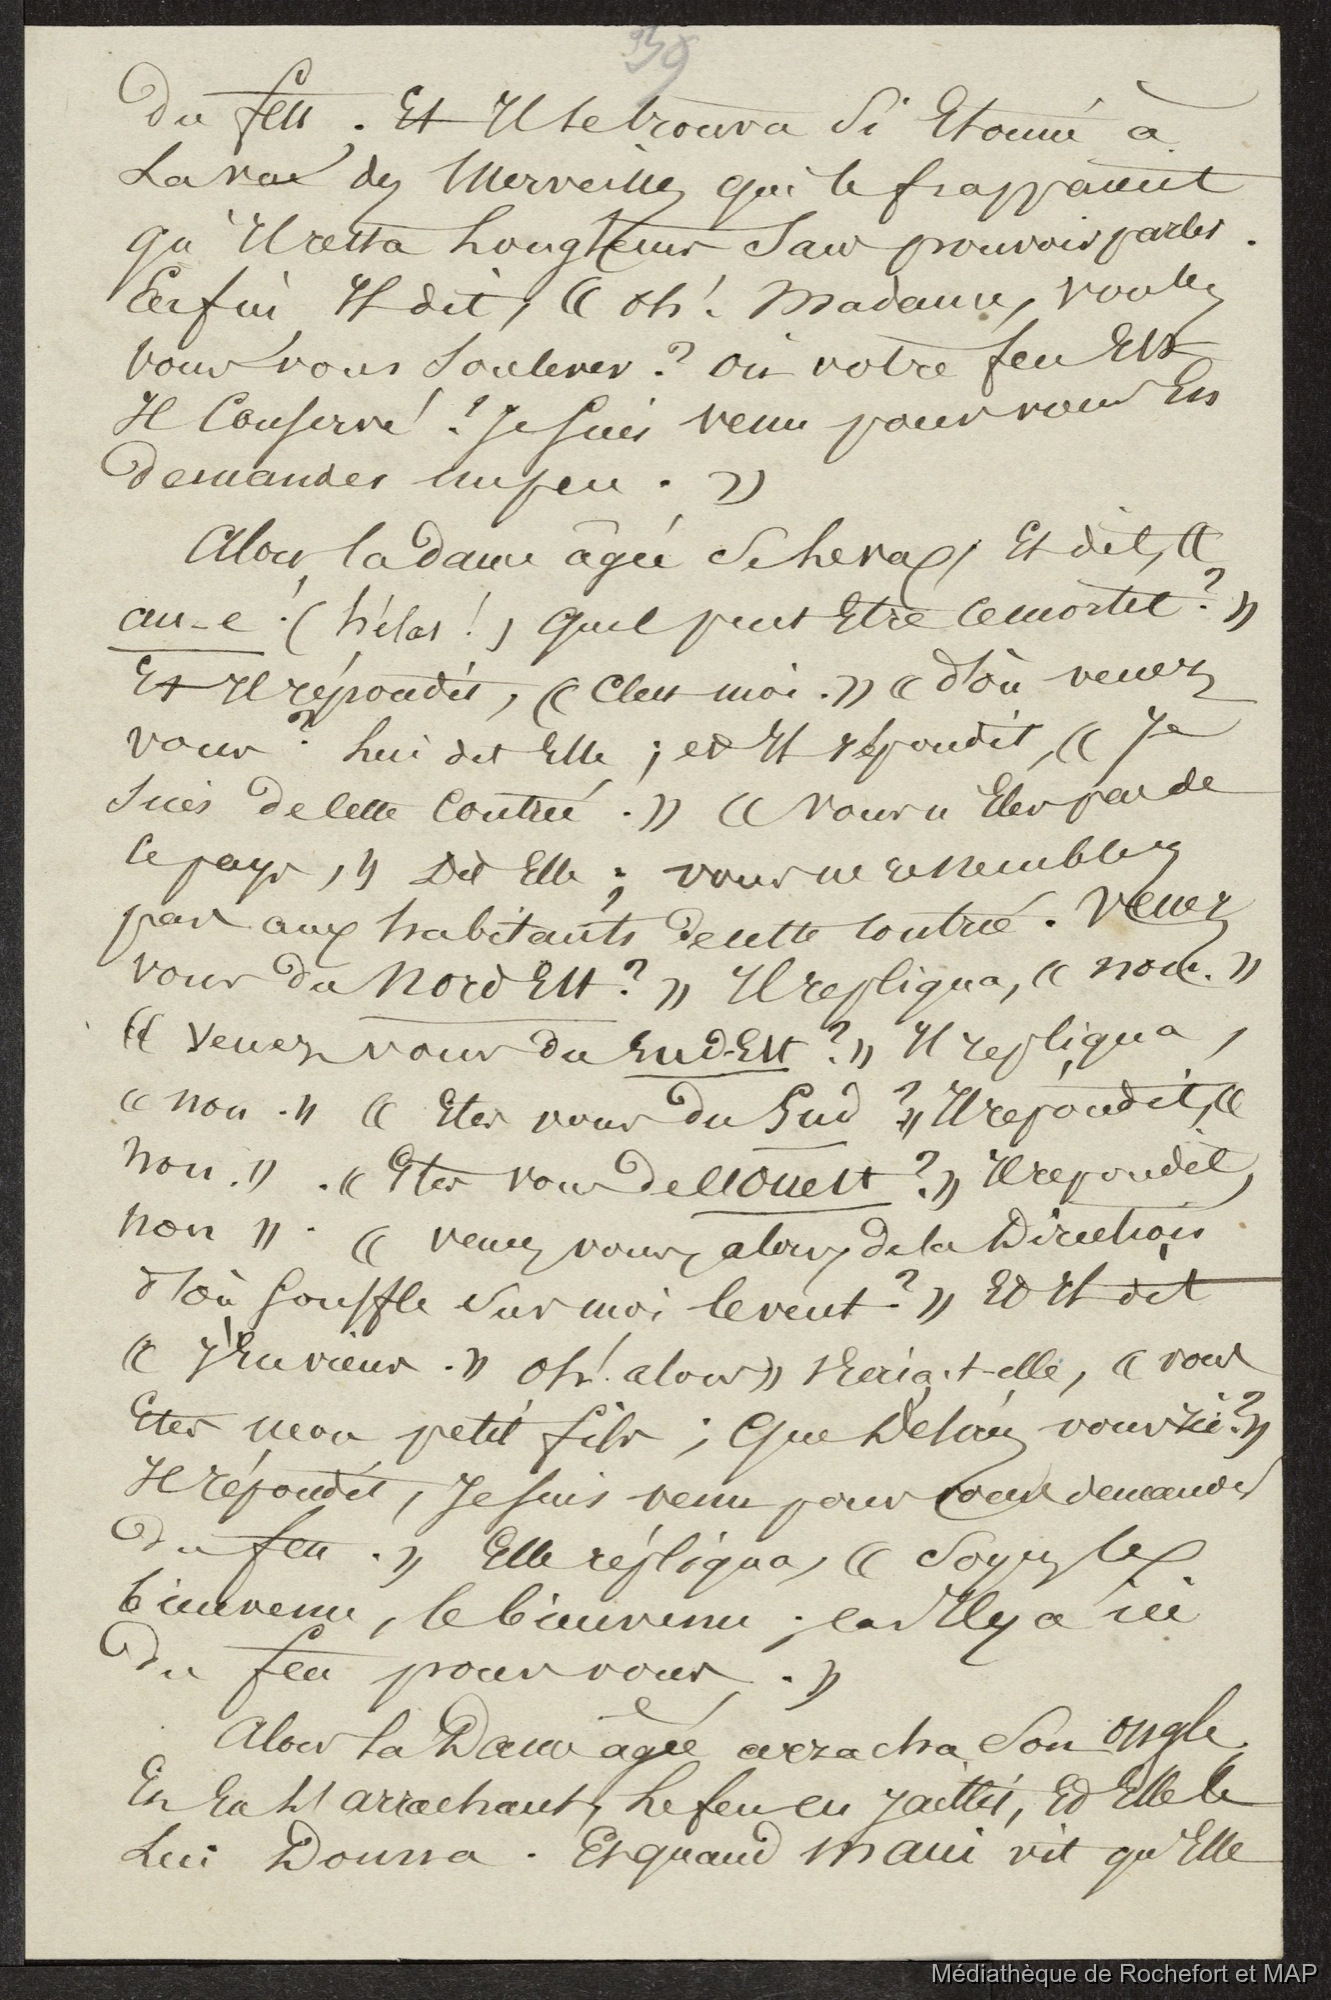 39
du feu. Et Il se trouva si Etonné à
La vue des Merveilles qui le frappaient
qu'Il resta Longtems Sans pouvoir parler.
Enfin, Il dit, « oh! Madame, voulez
vous vous soulever? où votre feu Est
Il Conservé? Je suis venu pour vous En
demander un peu. »
Alors la Dame âgée se leva, Et dit, «
au-e! (hélas!) quel peut Etre ce mortel? »
Et Il répondit, « C'est moi. » « d'où venez
vous? Lui dit Elle; et Il répondit, « Je
suis de cette Contrée. » « vous n'Etes pas de
ce pays, » Dit Elle; vous ne ressemblez
pas aux habitants de cette contrée. Venez
vous du Nord Est? » Il repliqua, « non. »
« Venez vous du Sud-Est? » Il repliqua,
« non. » « Etes vous du Sud? » Il répondit, «
Non. ». « Etes vous de l'Ouest? » Il repondit,
non ». « venez vous alors de la Direction
d'où souffle sur moi le vent? » Et Il dit
« J'En viens. » Oh! alors » s'Ecria-t-elle, « vous
Etes mon petit fils; Que Désirez vous ici? »
Il répondit, Je suis venu pour vous demander
du feu. » Elle répliqua, « Soyez le
bienvenu, le bienvenu; car Il y a ici
du feu pour vous. »
Alors La Dame âgée arracha son ongle.
En En l'arrachant, Le feu en jaillit, Et Elle le
Lui Donna. Et quand Maui vit qu'Elle
Médiathèque de Rochefort et MAP